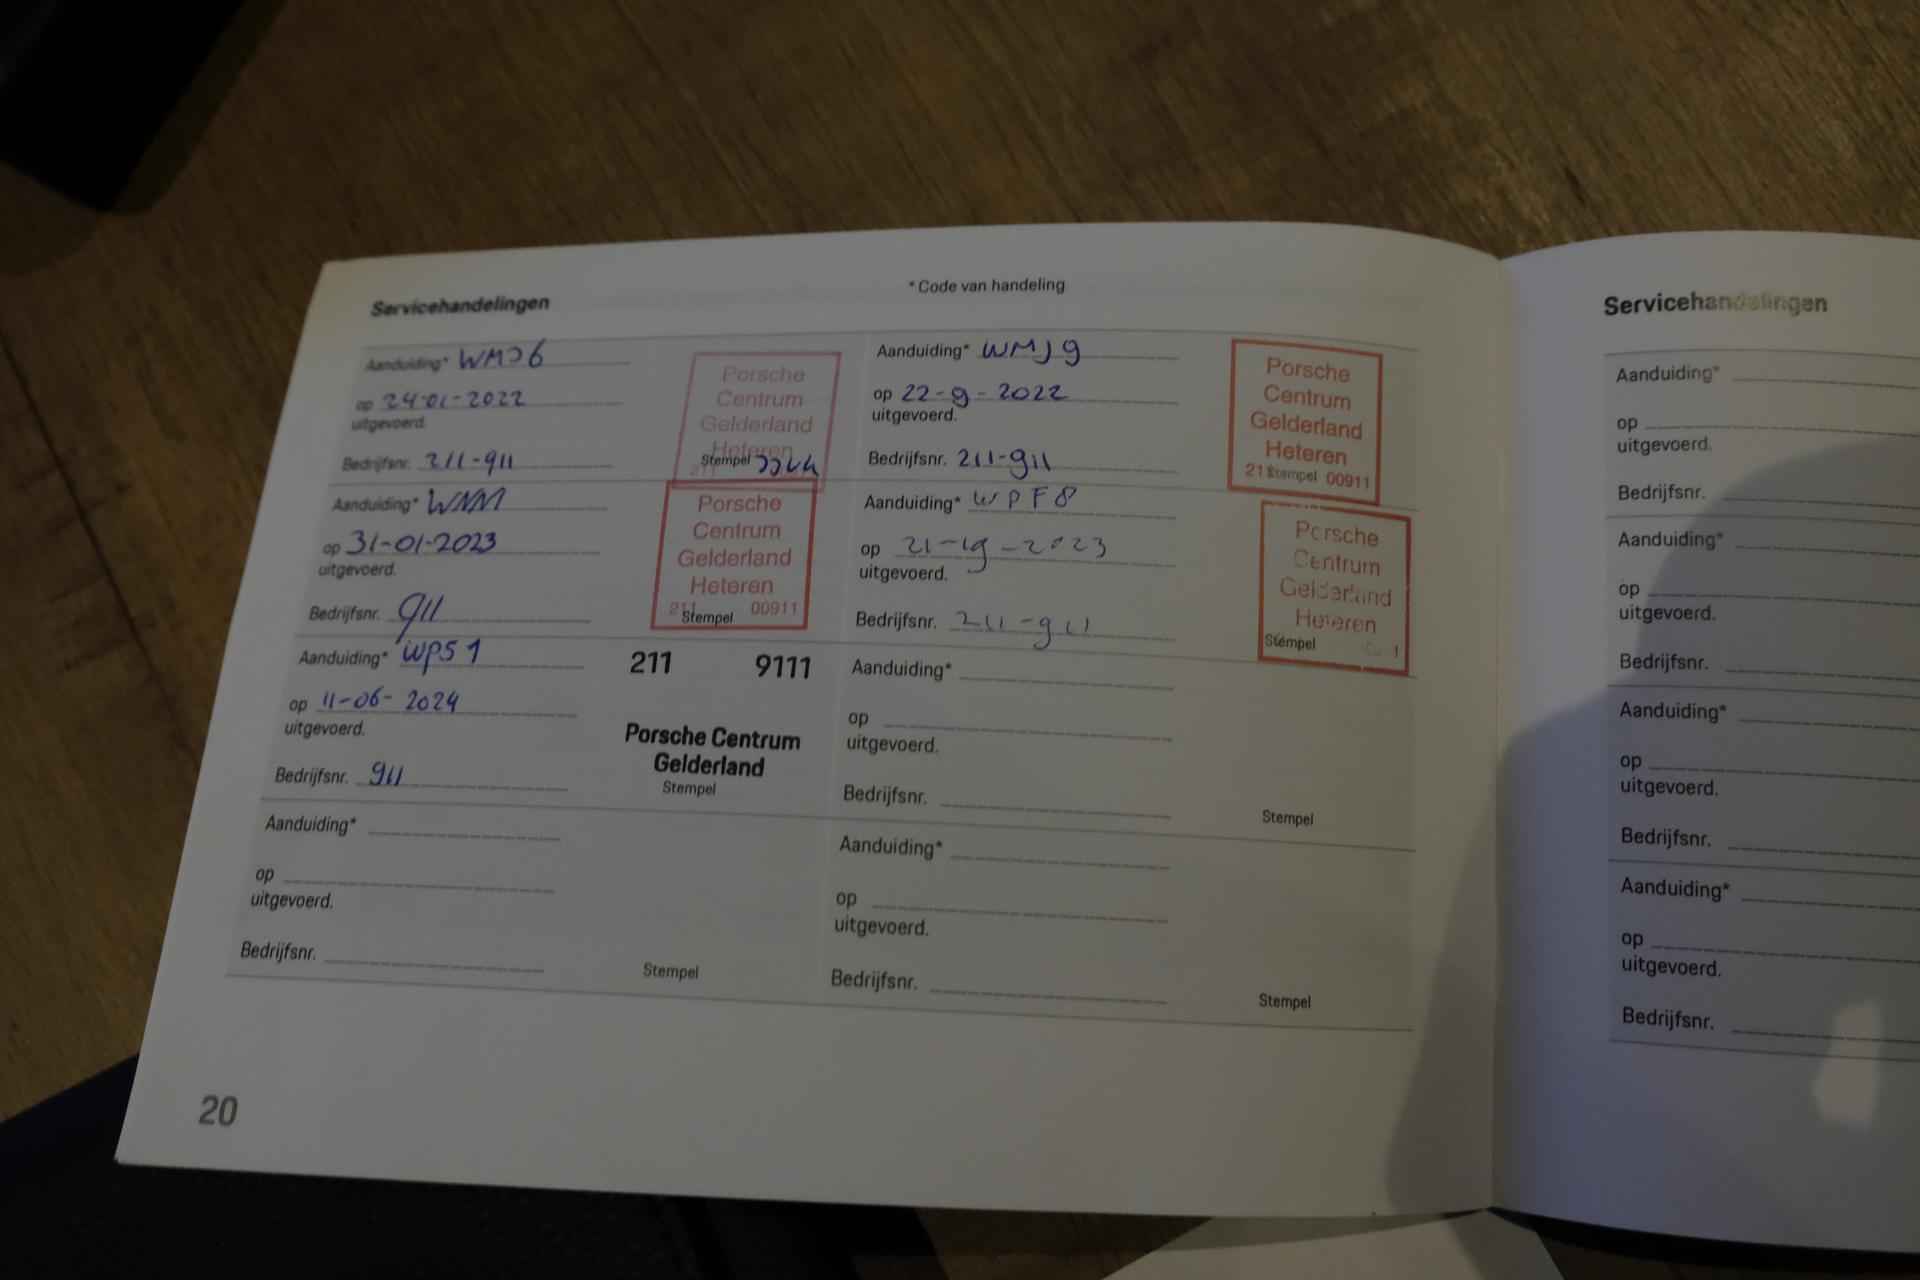 Servicehandelingen
* Code van handeling
Aanduiding* WMJ6
op 24-01-2022
uitgevoerd.
Bedrijfsnr. 211-911
Porsche
Centrum
Gelderland
Heteren
211
Stempel
Aanduiding* WMJ9
op 22-9-2022
uitgevoerd.
Bedrijfsnr. 211-911
Porsche
Centrum
Gelderland
Heteren
21 Stempel 00911
Aanduiding* WNM1
op 31-01-2023
uitgevoerd.
Bedrijfsnr. 911
Porsche
Centrum
Gelderland
Heteren
211 00911
Stempel
Aanduiding* WPF8
op
uitgevoerd.
Bedrijfsnr. 211-911
Porsche
Centrum
Gelderland
Heteren
Stempel 1
Aanduiding* WPS1
op 11-06-2024
uitgevoerd.
Bedrijfsnr. 911
211 9111
Porsche Centrum
Gelderland
Stempel
Aanduiding*
op
uitgevoerd.
Bedrijfsnr.
Stempel
Aanduiding*
op
uitgevoerd.
Bedrijfsnr.
Stempel
Aanduiding*
op
uitgevoerd.
Bedrijfsnr.
Stempel
20
Servicehandelingen
Aanduiding*
op
uitgevoerd.
Bedrijfsnr.
Aanduiding*
op
uitgevoerd.
Bedrijfsnr.
Aanduiding*
op
uitgevoerd.
Bedrijfsnr.
Aanduiding*
op
uitgevoerd.
Bedrijfsnr.